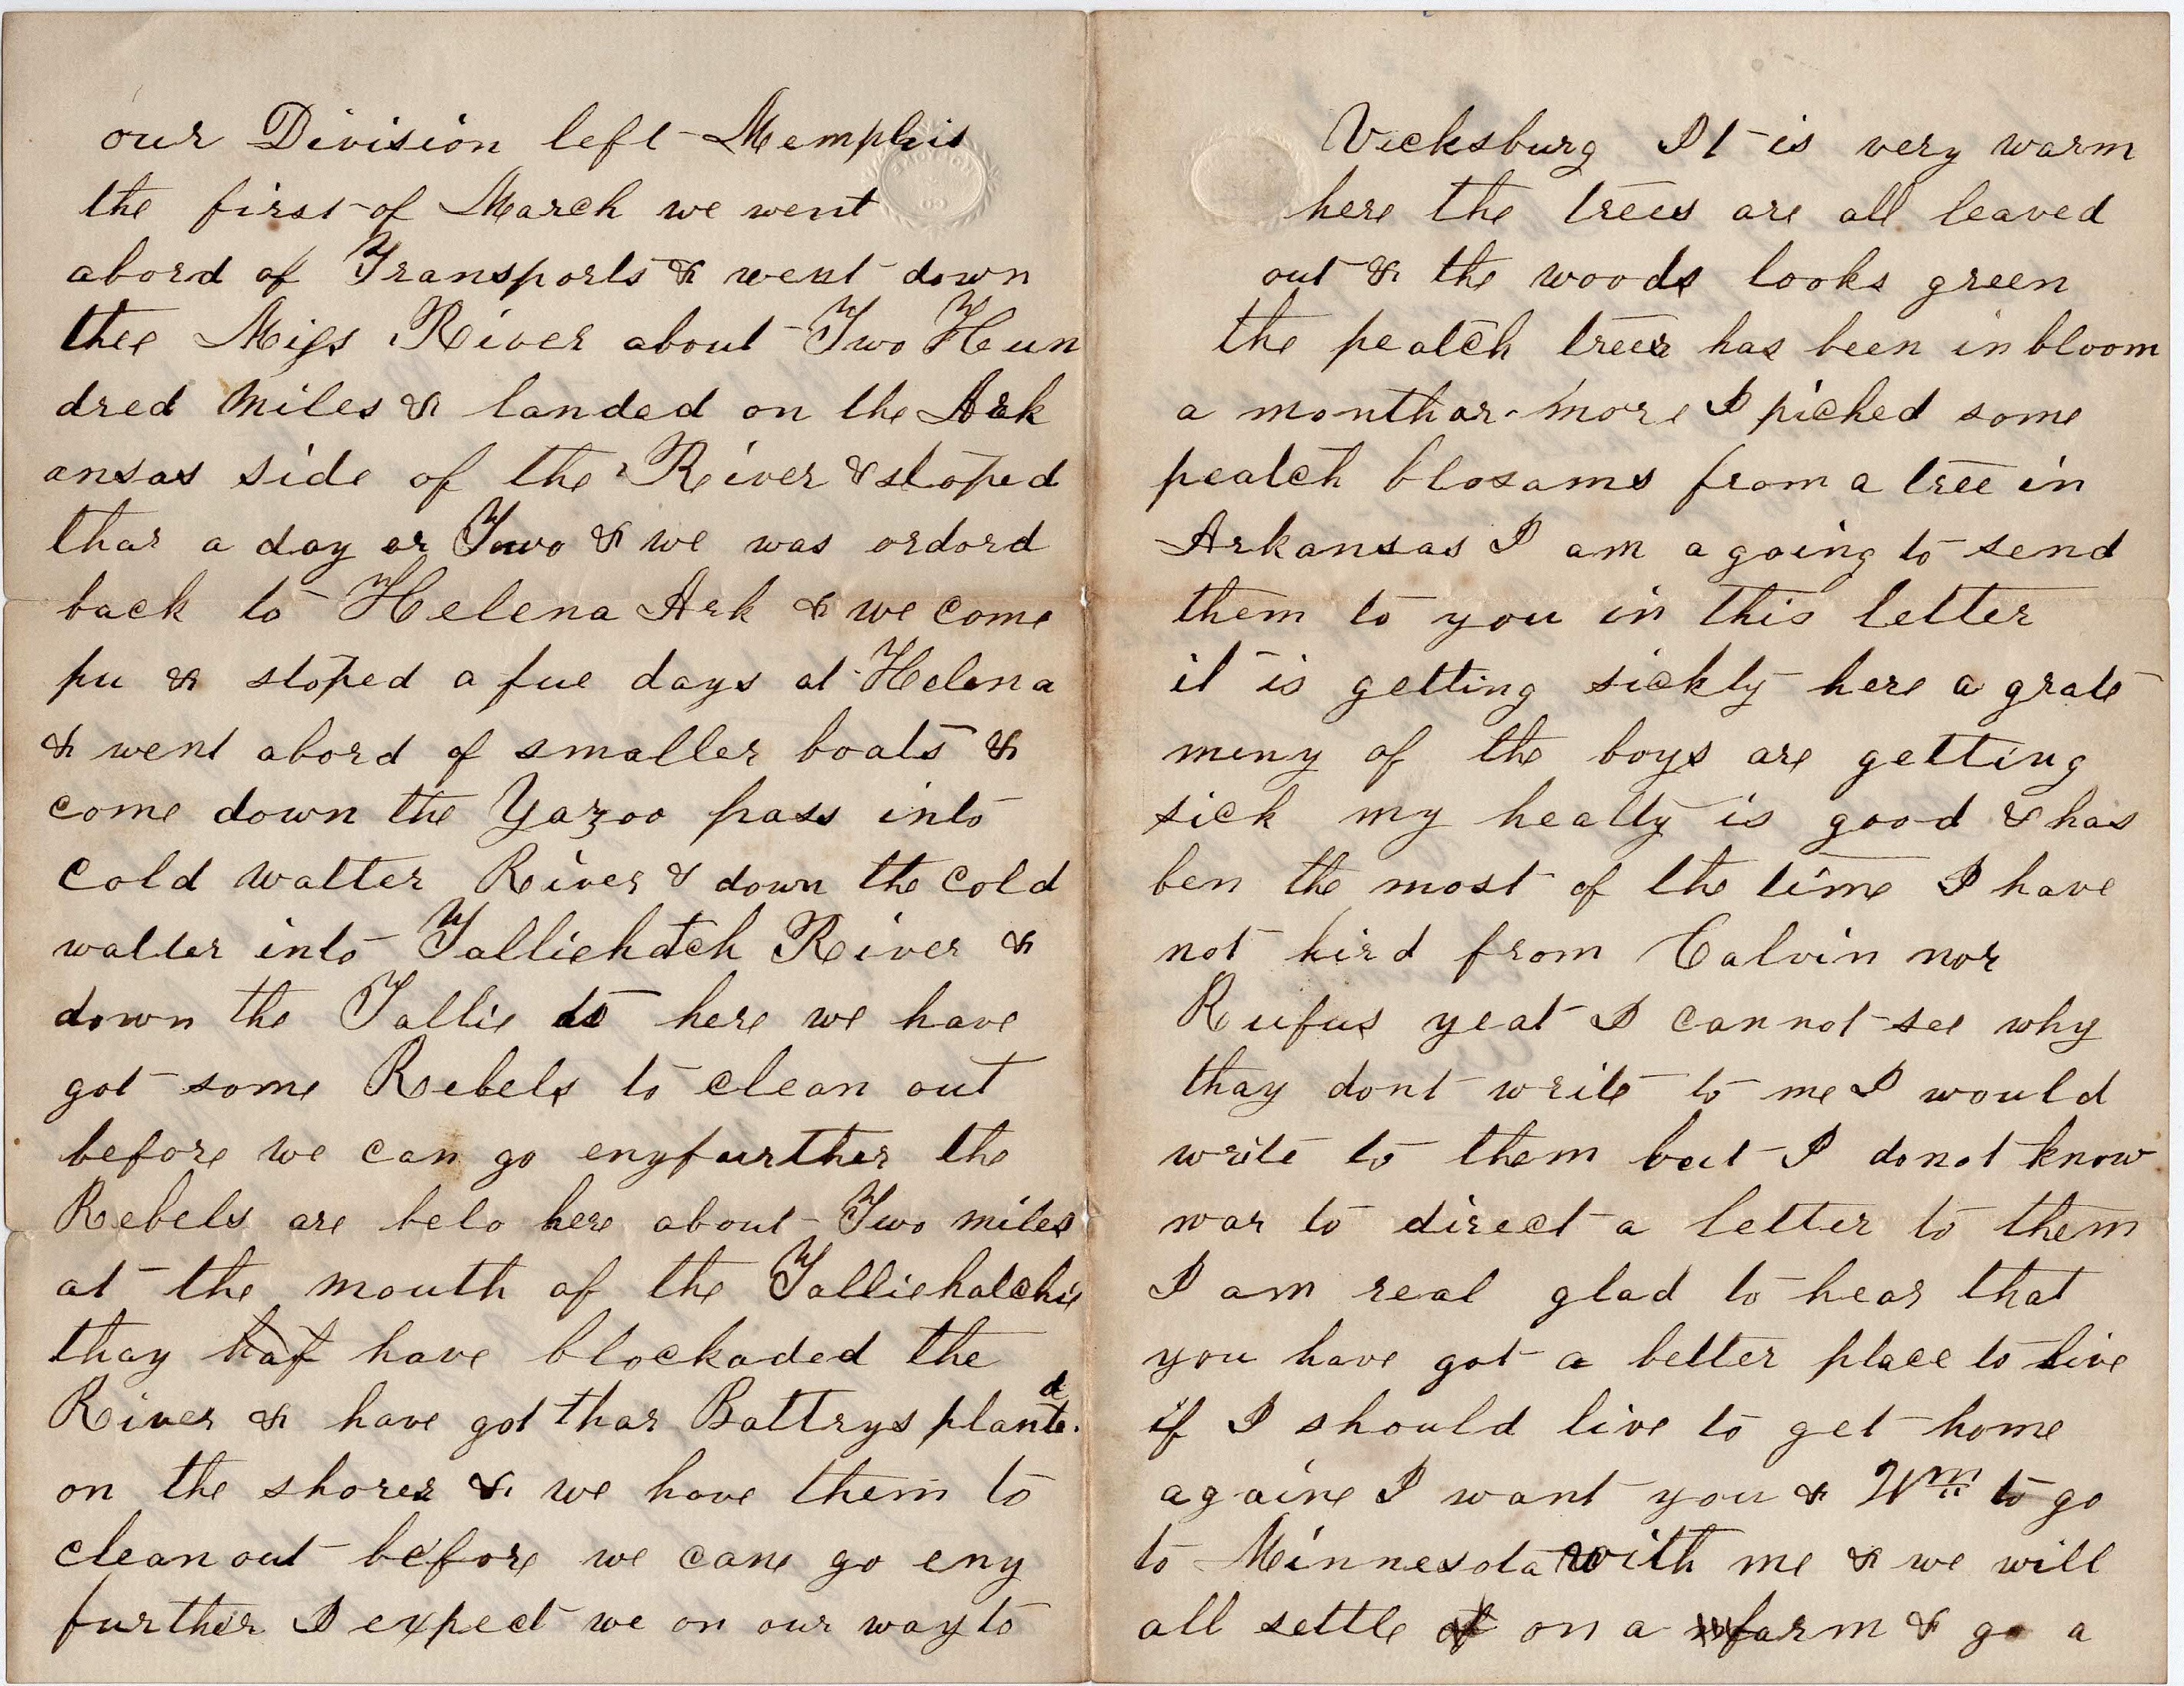 our Division left Memphis
the first of March we went
abord of Transports & went down
thee Miss River about Two Hun
dred miles & landed on the Ark
ansas side of the River & stoped
thar a day or Two & we was ordord
back to Helena Ark & we come
pu & stoped a fue days at Helena
& went abord of smaller boats &
come down the Yazoo pass into
Cold watter River & down the Cold
watter into Talliehatch River &
down the Tallie to here we have
got some Rebels to clean out
before we can go enyfurther the
Rebels are belo here about Two miles
at the mouth of the Talliehatchie
thay haf have blockaded the
River & have got thar Battrys planted.
on the shores & we have them to
clean out before we cane go eny
further I expect we on our way to
Vicksburg It is very warm
here the trees are all leaved
out & the woods looks green
the peatch trees has been in bloom
a month or more I picked some
peatch blosams from a tree in
Arkansas I am agoing to send
them to you in this letter
it is getting sickly here a grate
meny of the boys are getting
sick my healty is good & has
ben the most of the time I have
not hird from Calvin nor
Rufus yeat I cannot see why
thay dont write to me I would
write to them but I donot know
war to direct a letter to them
I am real glad to hear that
you have got a better place to live
if I should live to get home
againe I want you & Wm to go
to Minnesota with me & we will
all settle on a farm & go a